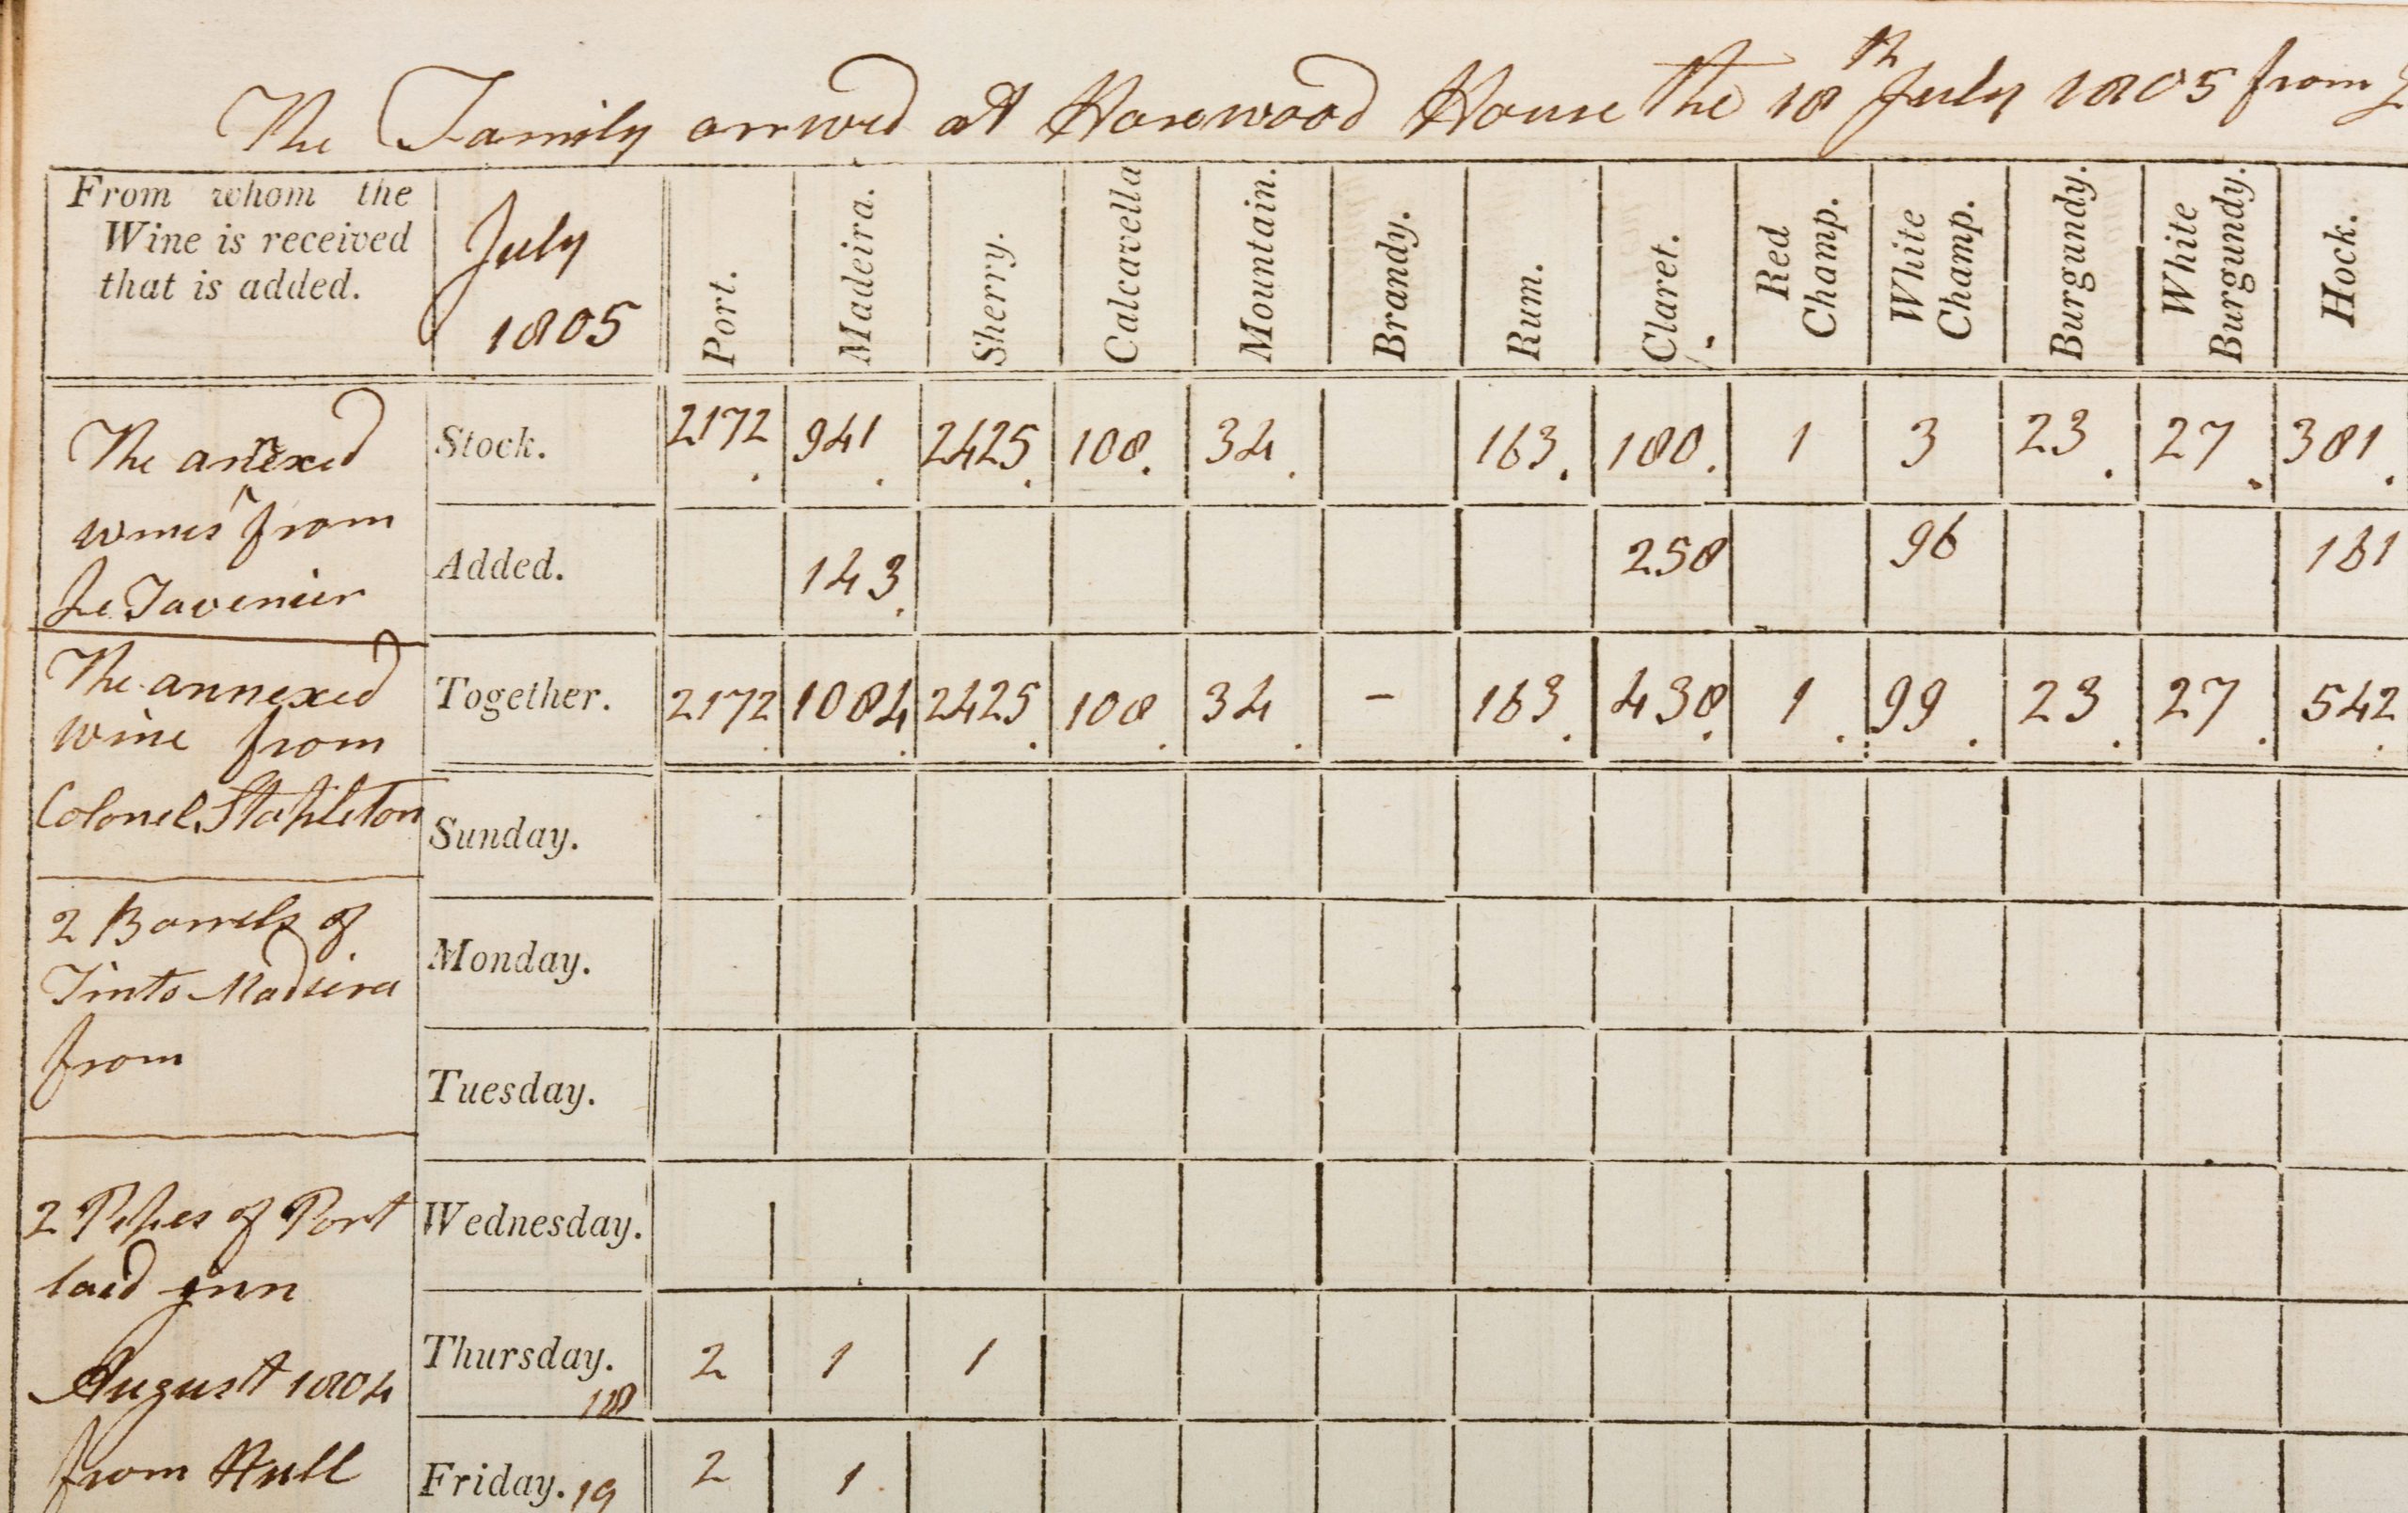 The Family arrived at Harewood House the 18th July 1805 from
From whom the
Wine is received
that is added.
July
1805
Port.
Madeira.
Sherry.
Calcavella
Mountain.
Brandy.
Rum.
Claret.
Red
Champ.
White
Champ.
Burgundy.
White
Burgundy.
Hock.
The annexed
wines from
Le Tavenier
Stock. 2172 941 2425 108 34 163 180 1 3 23 27 381
Added. 143 258 96 161
Together. 2172 1084 2425 108 34 - 163 438 1 99 23 27 542
The annexed
wine from
Colonel Stapleton
Sunday.
2 Barrels of
Tinto Madeira
from
Monday.
Tuesday.
2 Pipes of Port
laid inn
August 1804
from Hull
Wednesday.
Thursday. 18 2 1 1
Friday. 19 2 1